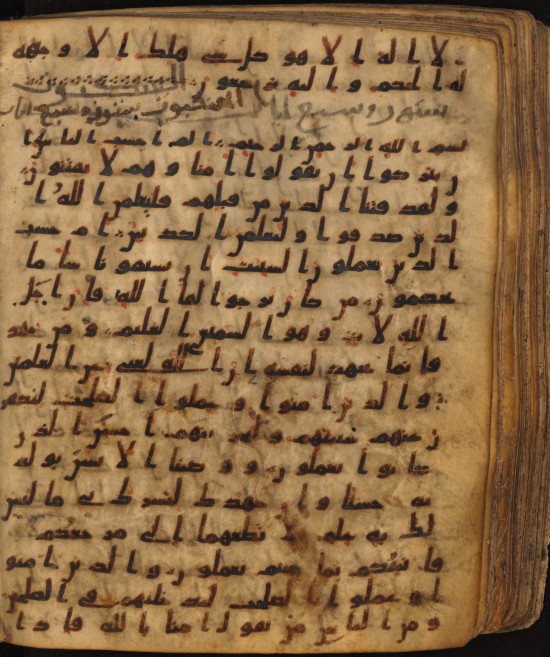 لا اله الا هو كل شى هلك الا وجهه
له الحكم و اليه ترجعون
العنكبوت سبعون و تسع ايات
بسم الله الرحمن الرحيم الم احسب الناس ا
ن يتركوا ان يقولوا امنا و هم لا يفتنون
و لقد فتنا الذين من قبلهم فليعلمن الله ا
لذين صدقوا و ليعلمن الكذبين ام حسب
الذين يعملون السيت ان يسبقونا سا ما
يحكمون من كان يرجوا لقا الله فان اجل
الله لات و هو السميع العليم و من جهد
فانما يجهد لنفسه ان الله لغنى عن العلمين
و الذين امنوا و عملوا الصلحت لنكفر
ن عنهم سيتهم و لنجزينهم احسن الذى
كانوا يعملون و وصينا الانسن بولد
يه حسنا و ان جهدك لتشرك بى ما ليس
لك به علم فلا تطعهما الى مرجعكم
فانبئكم بما كنتم تعملون و الذين امنو
ا و عملوا الصلحت لندخلنهم فى الصلحين
و من الناس من يقول امنا بالله فاذا